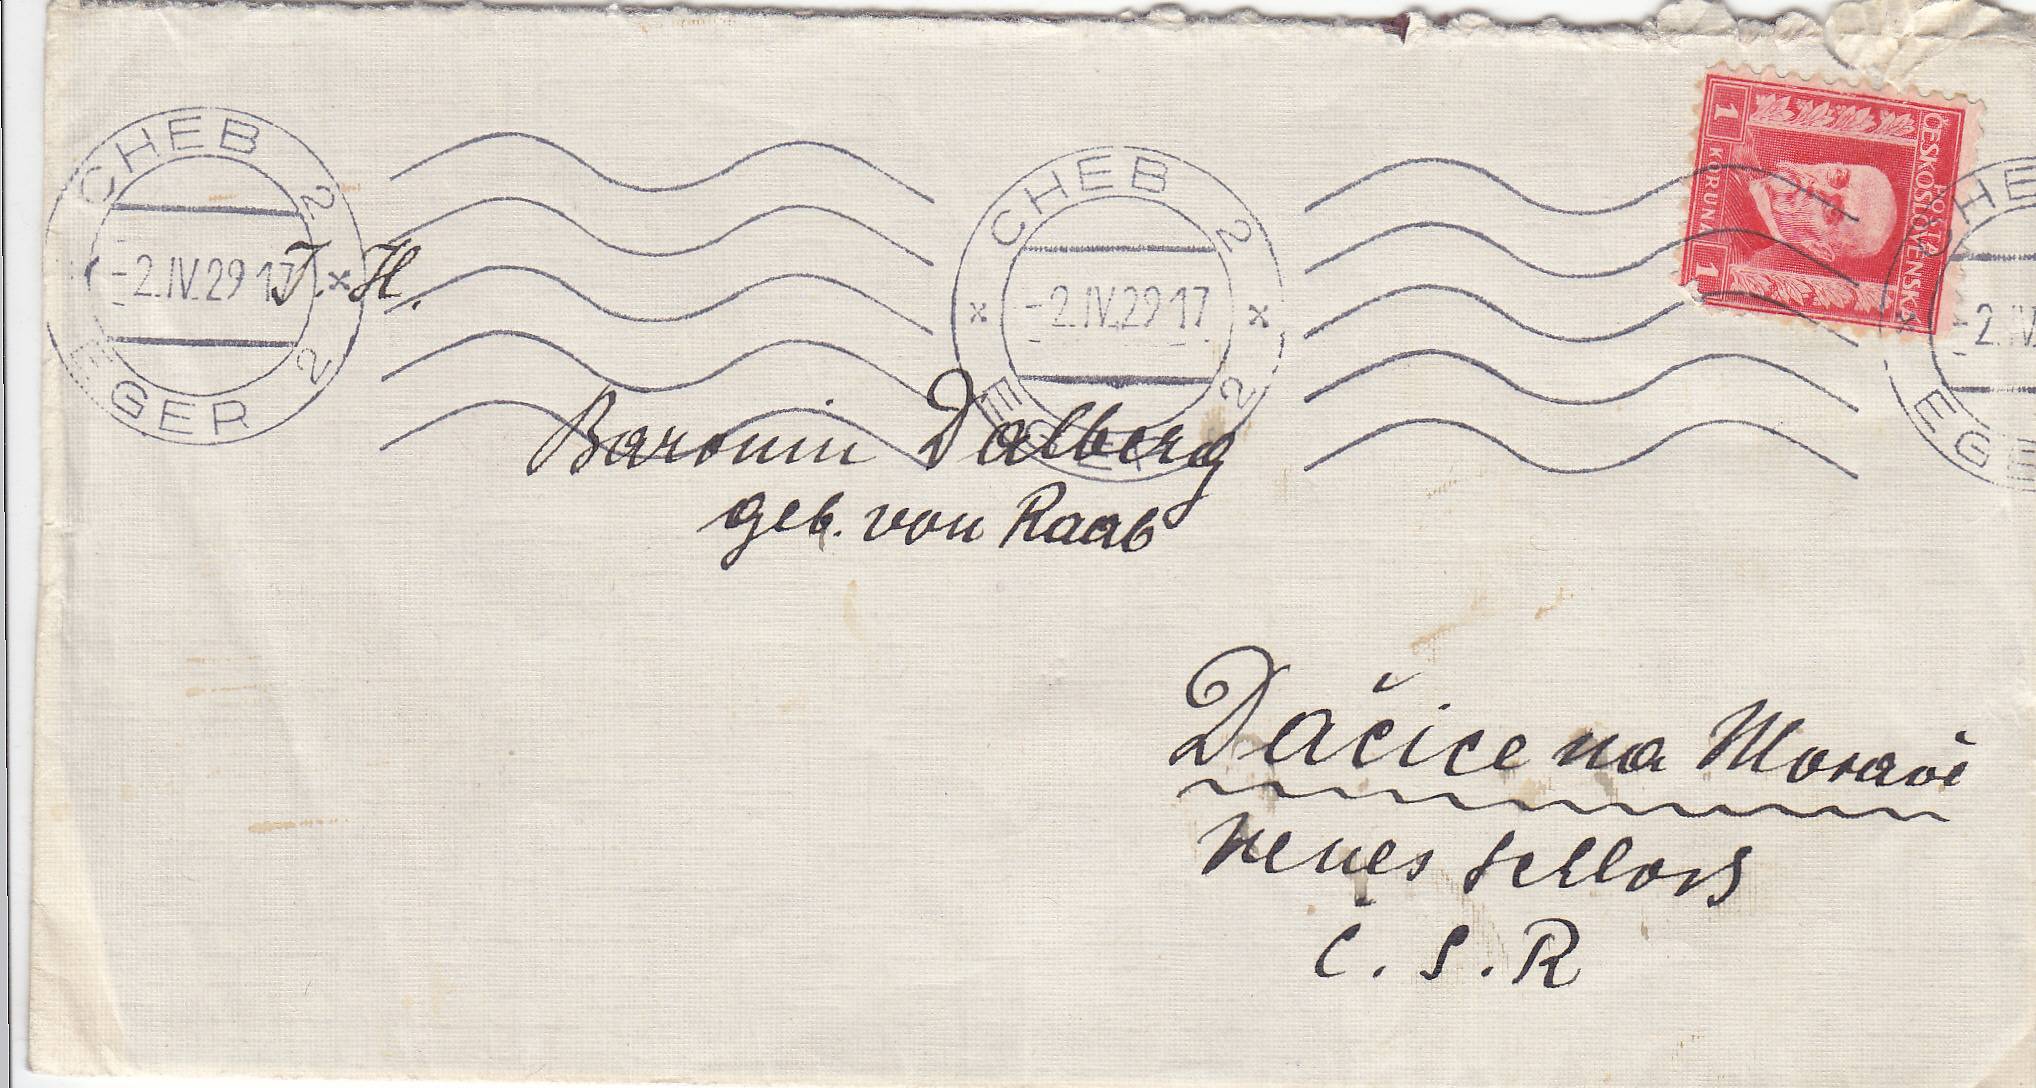 CHEB 2
-2.IV.29 17
EGER 2
CHEB 2
-2.IV.29 17
EGER 2
POŠTA
ČESKOSLOVENSKÁ
1 KORUNA 1
CHE
2
-2.IV
EGE
I. H.
Baronin Dalberg
geb. von Raab
Dačice na Moravě
Neues Schloß
Č. S. R